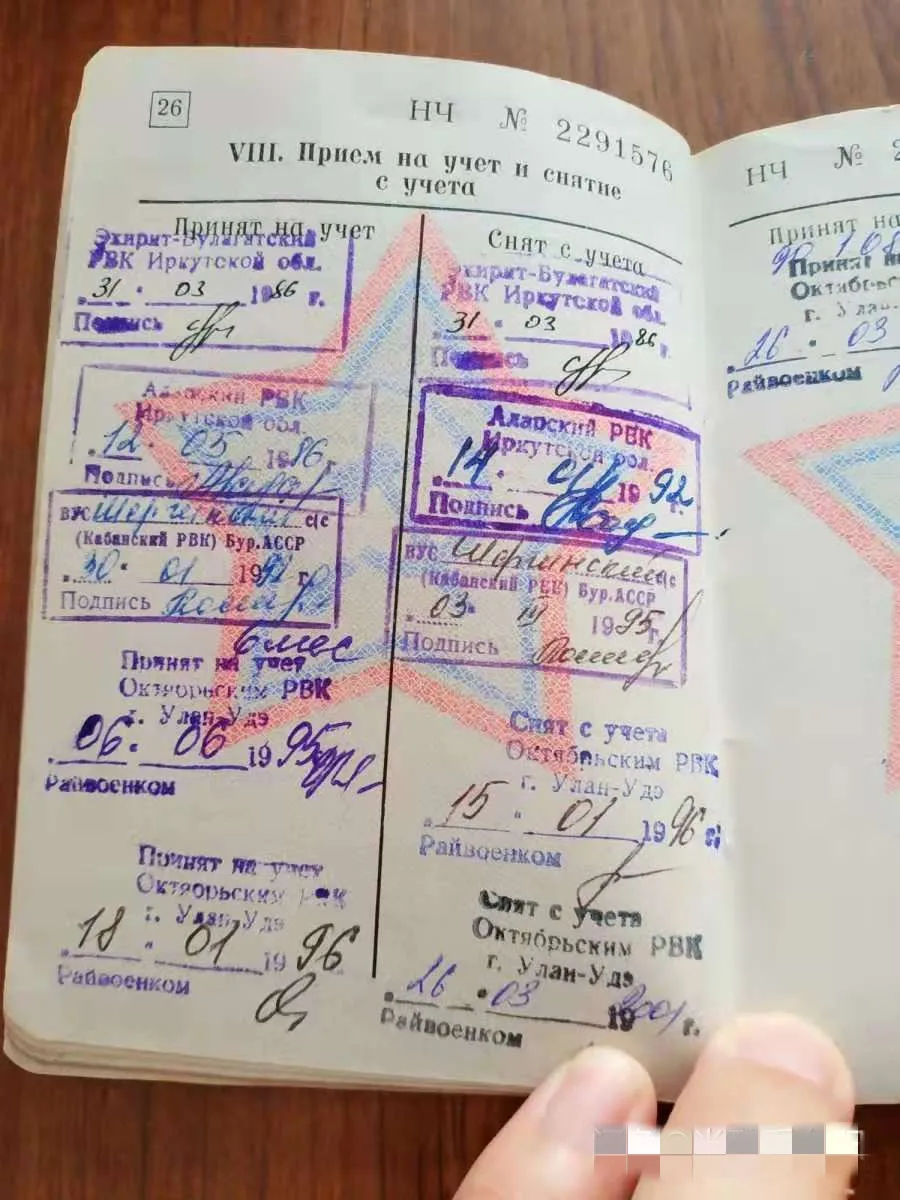 26
НЧ № 2291576
VIII. Прием на учет и снятие
с учета
Принят на учет
Эхирит-Булагатский
РВК Иркутской обл.
31 03 1986 г.
Подпись
Аларский РВК
Иркутской обл.
12 05 1986 г.
Подпись
ВУС Шергинский с/с
(Кабанский РВК) Бур.АССР
30 01 1992 г.
Подпись
6 мес
Принят на учет
Октябрьским РВК
г. Улан-Удэ
06. 06 1995
Райвоенком
Принят на учет
Октябрьским РВК
г. Улан-Удэ
18 01 1996
Райвоенком
Снят с учета
Эхирит-Булагатский
РВК Иркутской обл.
31 03 1986 г.
Подпись
Аларский РВК
Иркутской обл.
14 1992 г.
Подпись
ВУС Шергинский с/с
(Кабанский РВК) Бур.АССР
03 III 1995 г.
Подпись
Снят с учета
Октябрьским РВК
г. Улан-Удэ
15 01 1996 г.
Райвоенком
Снят с учета
Октябрьским РВК
г. Улан-Удэ
26 03 19 2001 г.
Райвоенком
НЧ № 2
Принят на
Принят н
Октябрьс
г. Улан
26 03
Райвоенком